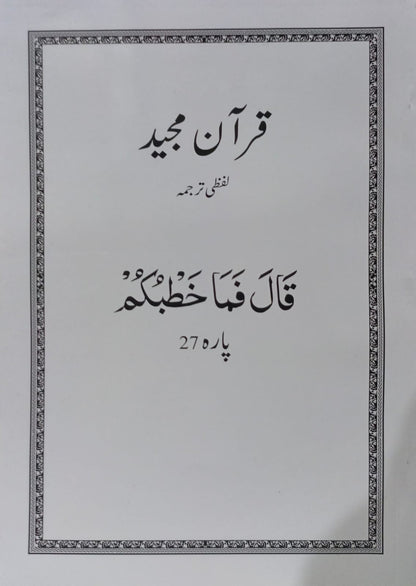 قرآن مجید
لفظی ترجمہ
قَالَ فَمَا خَطْبُكُمْ
پارہ 27